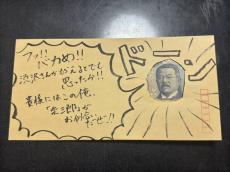 フッ!!
バカめ!!
渋沢さんが出るとでも
思ったか!!
貴様にはこの俺、
"柴三郎"が
お似合い
だぜ!!
ドーン